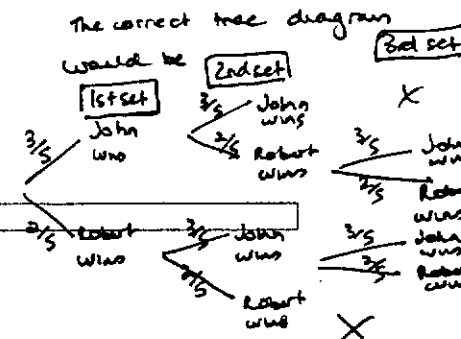 The correct tree diagram
would be
1st set
2nd set
3rd set
3/5
John
wins
3/5
John
wins
X
2/5
Robert
wins
3/5
John
2/5
Robert
wins
2/5
Robert
wins
3/5
John
wins
3/5
John
wins
2/5
Robert
2/5
Robert
wins
X